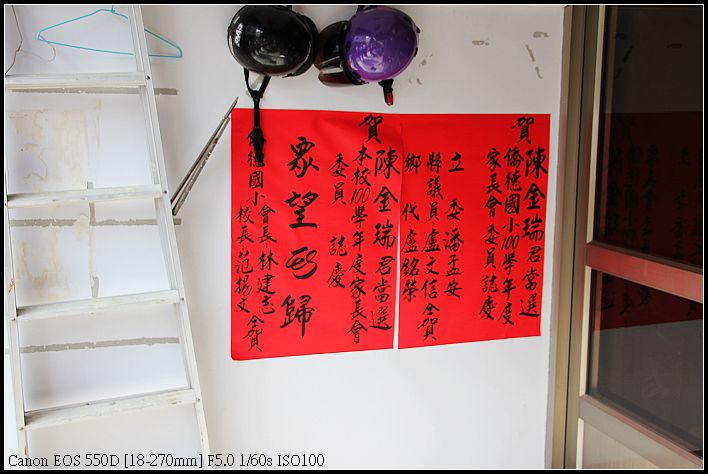 賀
陳金瑞君當選
僑德國小100學年度
家長會委員 誌慶
立委潘孟安
縣議員盧文信仝賀
鄉代盧銘榮
賀
陳金瑞君當選
本校100學年度家長會
委員 誌慶
衆望所歸
僑德國小
會長林建志
校長:范揚文
仝賀
Canon EOS 550D [18-270mm] F5.0 1/60s ISO100